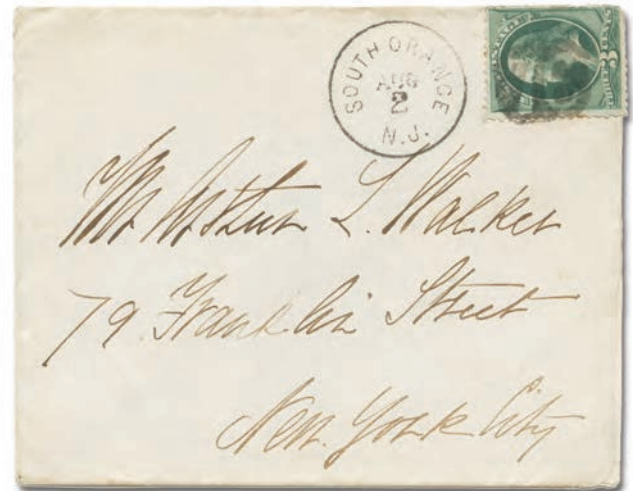 SOUTH ORANGE
AUG
2
N.J.
Mr Arthur L. Walker
79 Franklin Street
New York City